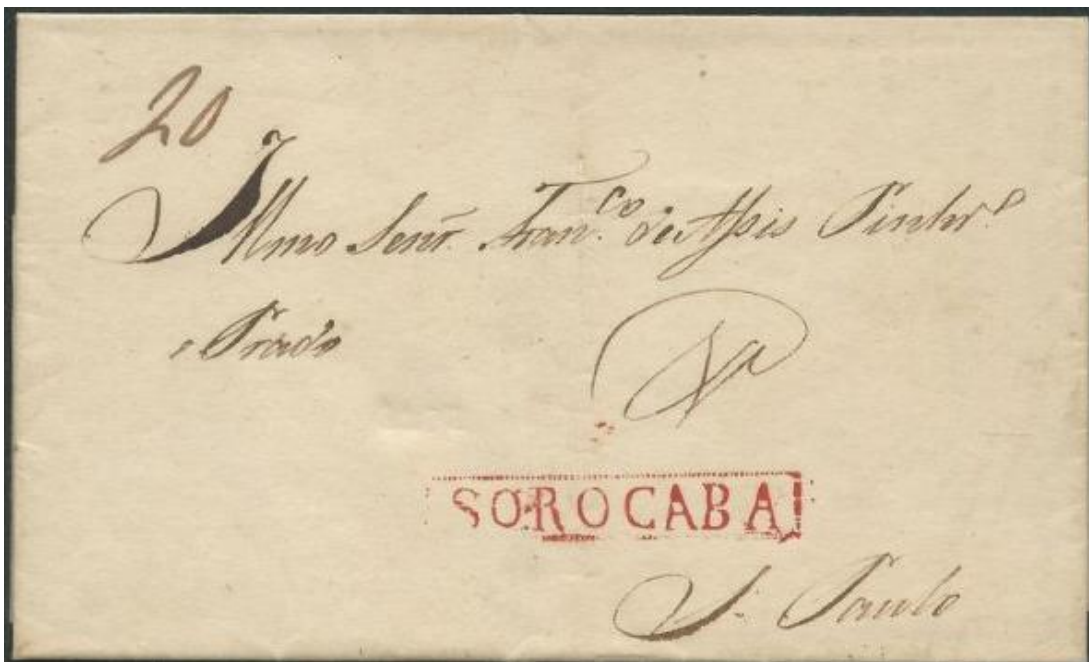 20
Illmo Senr. Franco. de Assis Pinhro.
e Prado
SOROCABA
S. Paulo